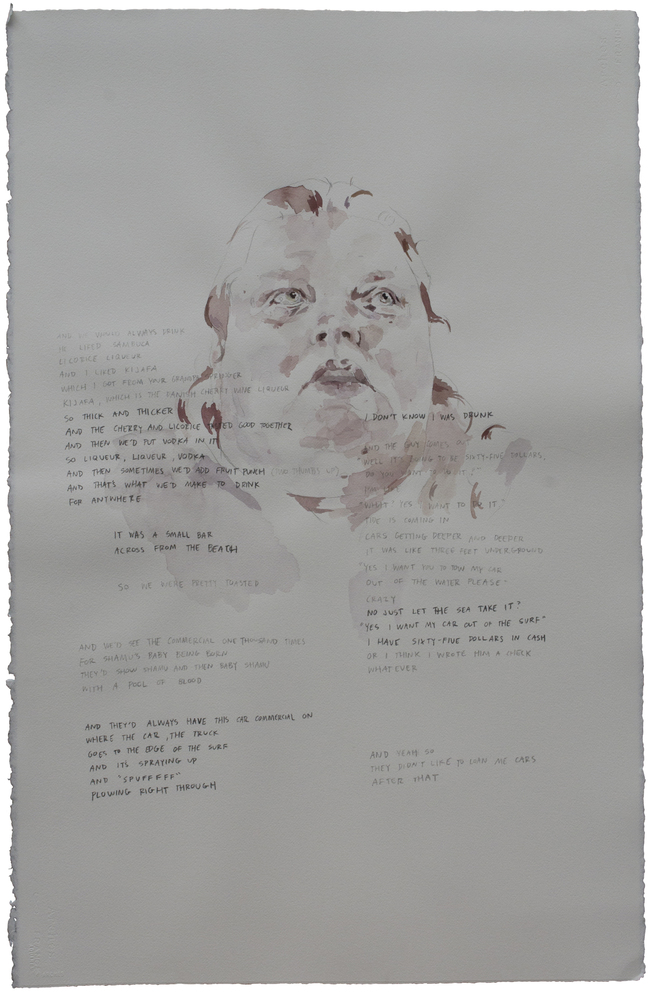 ALWAYS DRINK
LIKED SAMBUCA
LICORICE LIQUEUR
AND I LIKED KIJAFA
WHICH I GOT FROM YOUR
KIJAFA, WHICH IS THE DANISH CHERRY WINE LIQUEUR
SO THICK AND THICKER
AND THE CHERRY AND LICORICE TASTED GOOD TOGETHER
AND THEN WE'D PUT VODKA IN IT
SO LIQUEUR, LIQUEUR, VODKA
AND THEN SOMETIMES WE'D ADD FRUIT PUNCH
AND THATS WHAT WE'D MAKE TO DRINK
FOR ANYWHERE
IT WAS A SMALL BAR
ACROSS FROM THE BEACH
SO WE WERE PRETTY TOASTED
AND WE'D SEE THE COMMERCIAL ONE THOUSAND TIMES
FOR SHAMU'S BABY BEING BORN
THEY'D SHOW SHAMU AND THEN BABY SHAMU
WITH A POOL OF BLOOD
AND THEY'D ALWAYS HAVE THIS CAR COMMERCIAL ON
WHERE THE CAR, THE TRUCK
GOES TO THE EDGE OF THE SURF
AND ITS SPRAYING UP
AND "SPUFFFFF"
PLOWING RIGHT THROUGH
I DON'T KNOW I WAS DRUNK
AND THE GUY GOES
WELL IT'S GOING TO BE SIXTY-FIVE DOLLARS,
DO YOU WANT TO DO IT?"
"WHAT? YES I WANT TO DO IT"
TIDE IS COMING IN
CARS GETTING DEEPER AND DEEPER
IT WAS LIKE THREE FEET UNDERGROUND
"YES I WANT YOU TO TOW MY CAR
OUT OF THE WATER PLEASE"
CRAZY
NO JUST LET THE SEA TAKE IT?
"YES I WANT MY CAR OUT OF THE SURF"
I HAVE SIXTY-FIVE DOLLARS IN CASH
OR I THINK I WROTE HIM A CHECK
WHATEVER
AND YEAH SO
THEY DIDN'T LIKE TO LOAN ME CARS
AFTER THAT